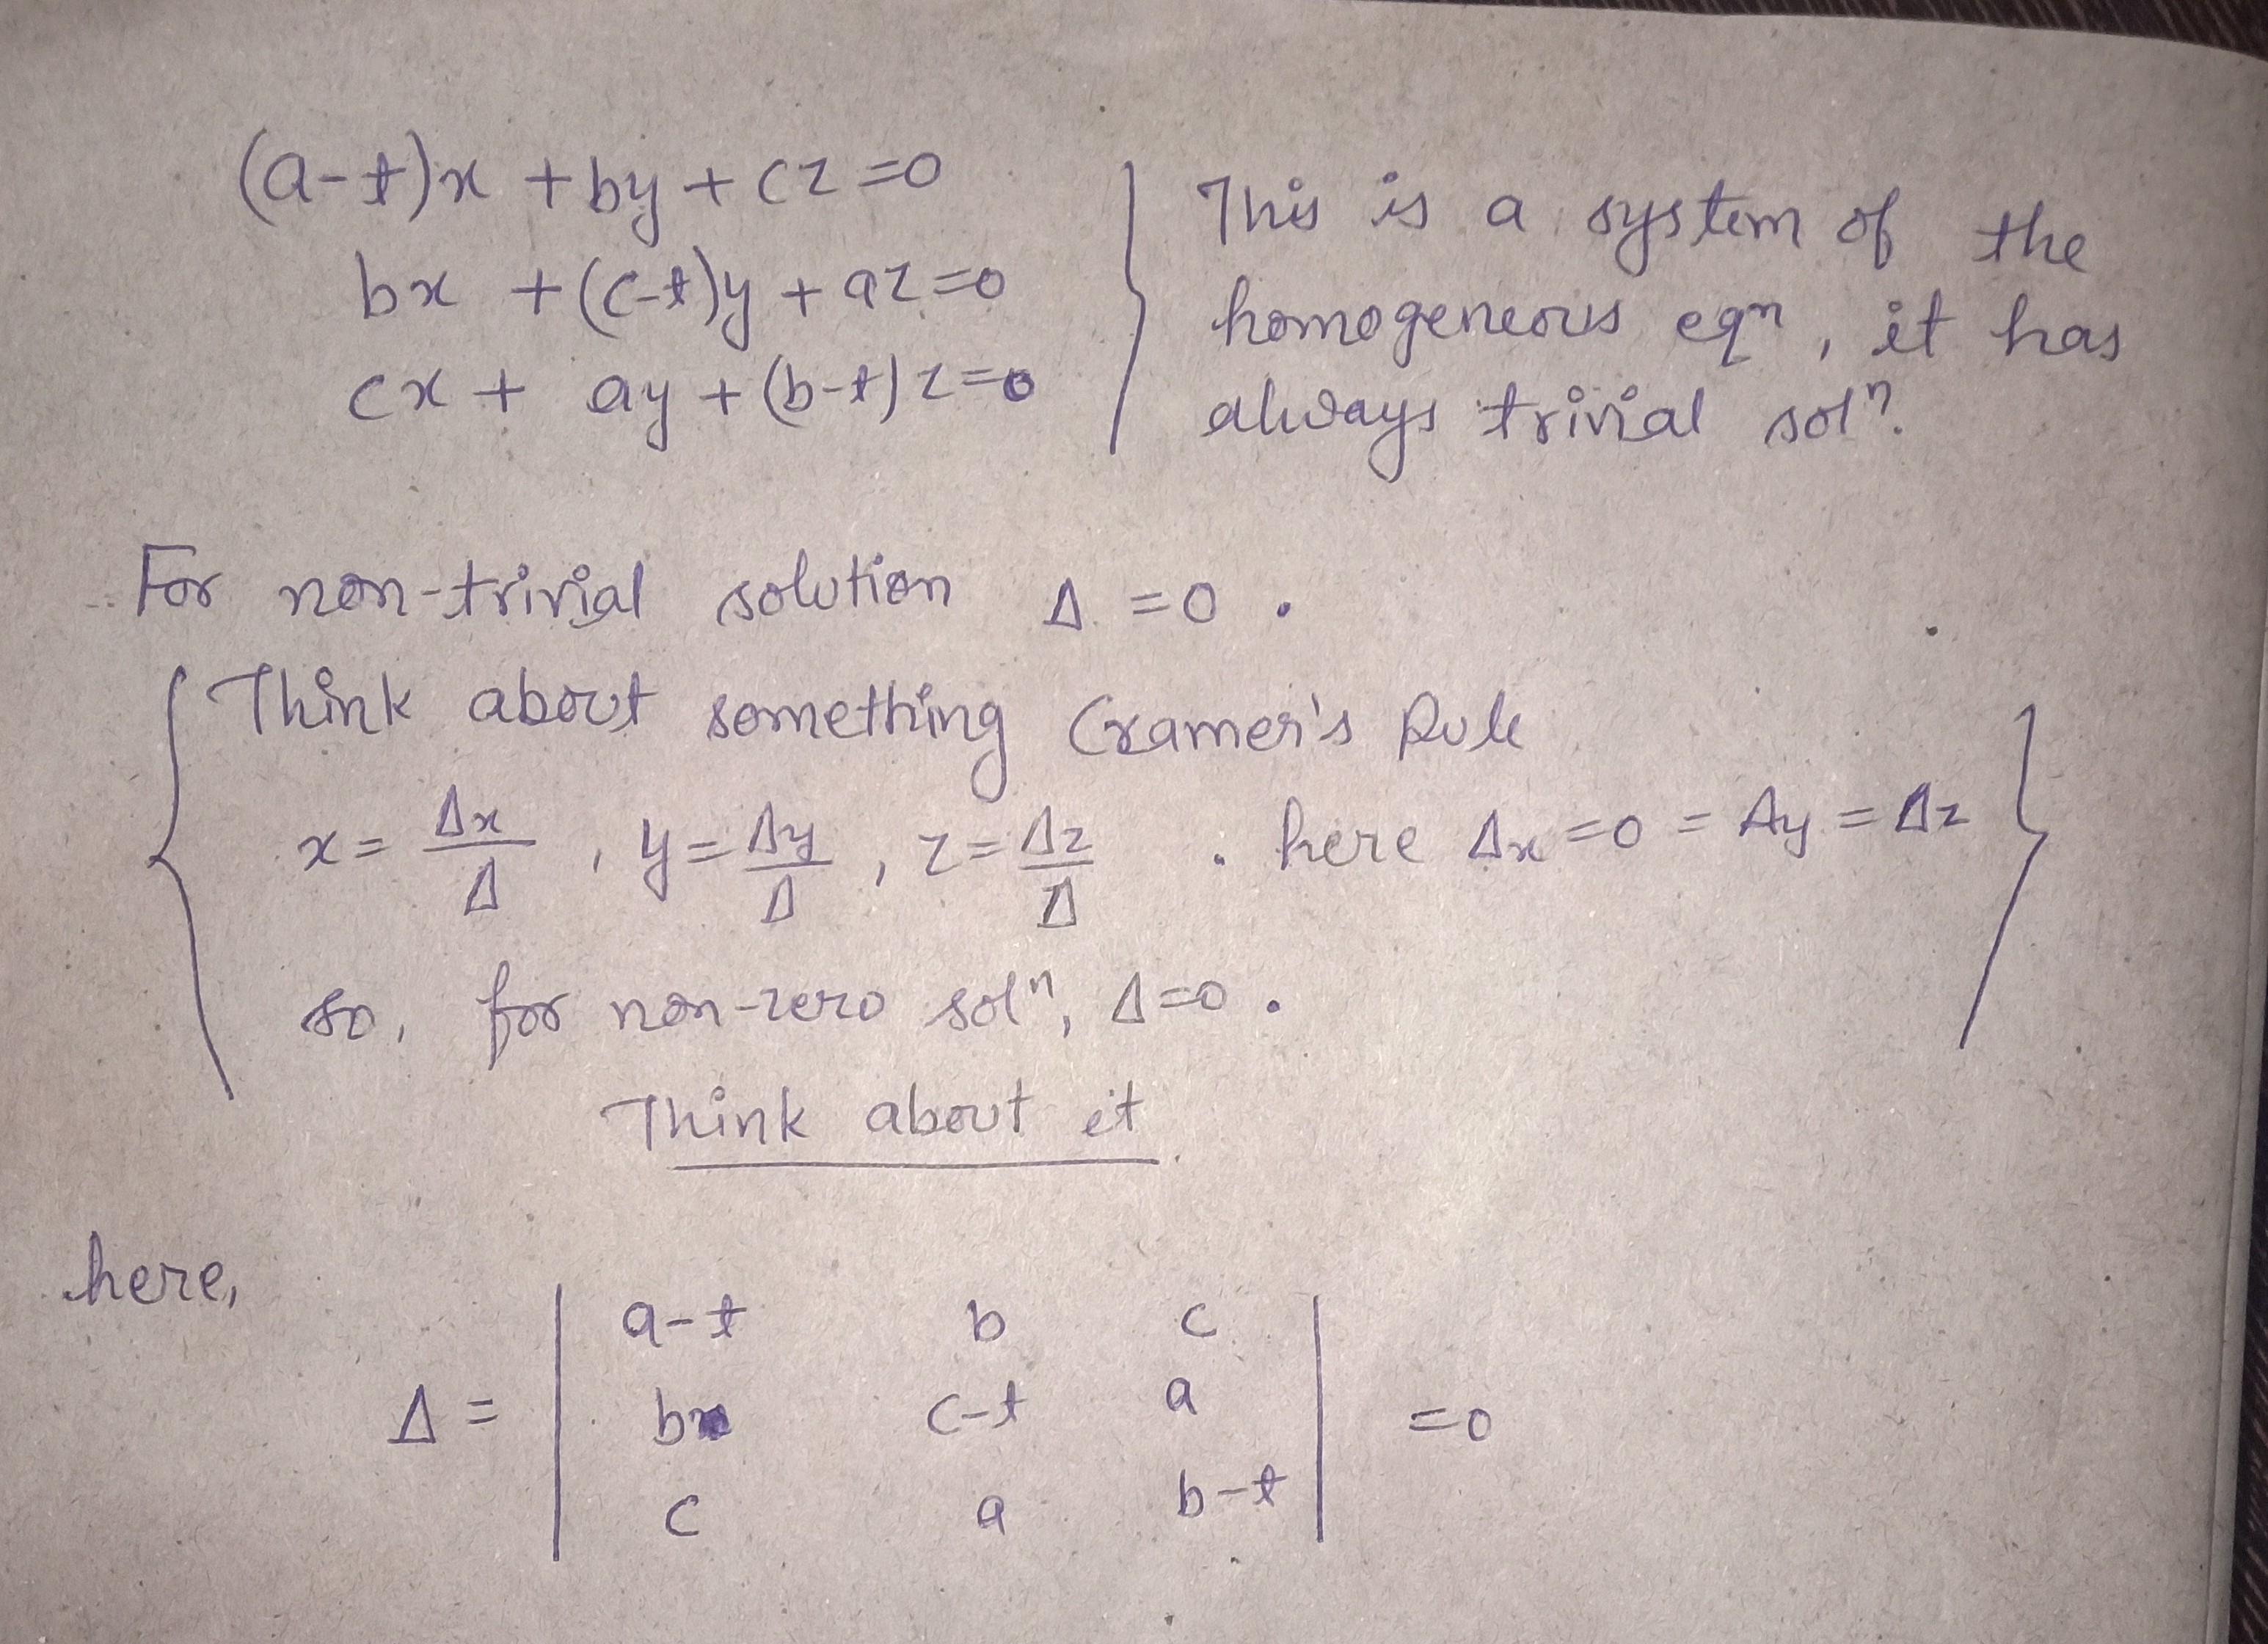 (a-t)x + by + cz = 0
bx + (c-t)y + az = 0
cx + ay + (b-t)z = 0
This is a system of the
homogeneous eqⁿ, it has
always trivial solⁿ.
For non-trivial solution Δ = 0.
Think about something Cramer's Rule
x = Δx/Δ, y = Δy/Δ, z = Δz/Δ. here Δx = 0 = Δy = Δz
so, for non-zero solⁿ, Δ = 0.
Think about it
here,
a-t b c
Δ = b c-t a = 0
c a b-t